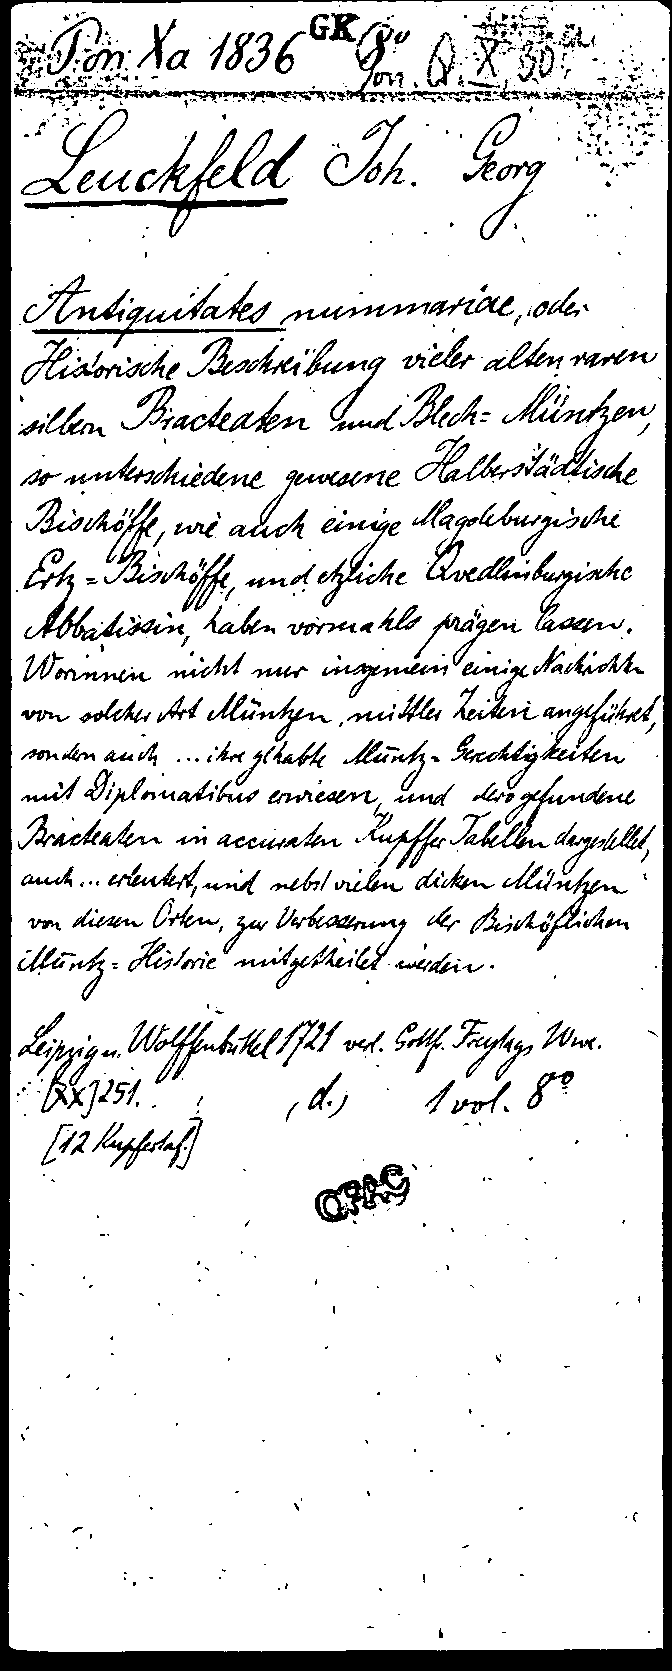 Pon Xa 1836 GK 8° Pon. Q. X, 50.
Leuckfeld Joh. Georg
Antiquitates nummariae, oder
Historische Beschreibung vieler alten raren
silbern Bracteaten und Blech= Müntzen,
so unterschiedene gewesene Halberstädtische
Bischöffe, wie auch einige Magdeburgische
Ertz=Bischöffe, und etzliche Qvedlinburgische
Abbatissin, haben vormahls prägen lassen.
Worinnen nicht nur insgemein einige Nachrichten
von solcher Art Müntzen, mittler Zeiten angeführet,
sondern auch ... ihre gehabte Müntz= Gerechtigkeiten
mit Diplomatibus erwiesen, und dero gefundene
Bracteaten in accuraten Kupffer Tabellen dargestellet,
auch ... erleutert, und nebst vielen dicken Müntzen
von diesen Orten, zur Verbesserung der Bischöflichen
Müntz= Historie mitgetheilet werden.
Leipzig u. Wolffenbüttel 1721 verl. Gottfr. Freytags Wwe.
[XX] 251. , d.) 1 vol. 8°
[12 Kupfertaf.]
OPAC